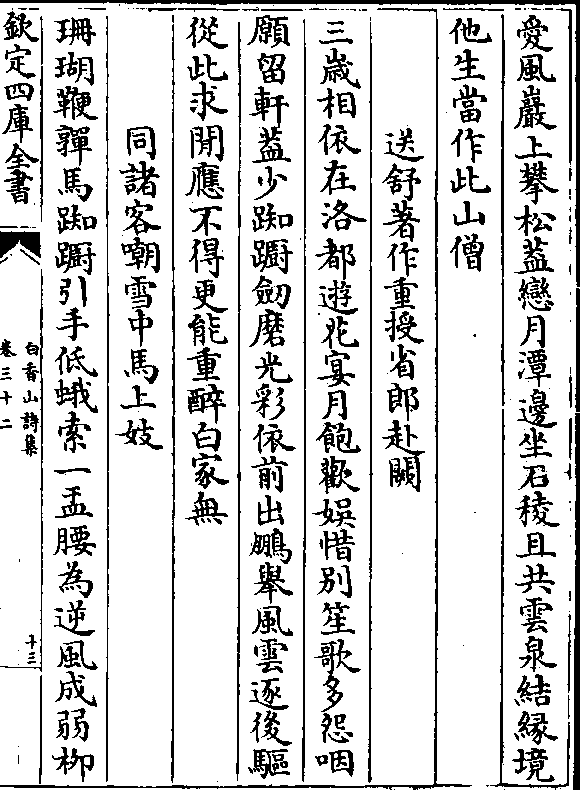 愛風巖上攀松葢戀月潭邊坐石稜且共雲泉結緣境
他生當作此山僧
送舒著作重授省郎赴闕
三歲相依在洛都遊花宴月飽歡娛惜別笙歌多怨咽
願留軒葢少踟躕劒磨光彩依前出鵬舉風雲逐後驅
從此求閒應不得更能重醉白家無
同諸客嘲雪中馬上妓
珊瑚鞭嚲馬踟躕引手低蛾索一盂腰為逆風成弱柳
欽定四庫全書
白香山詩集
卷三十二
十三